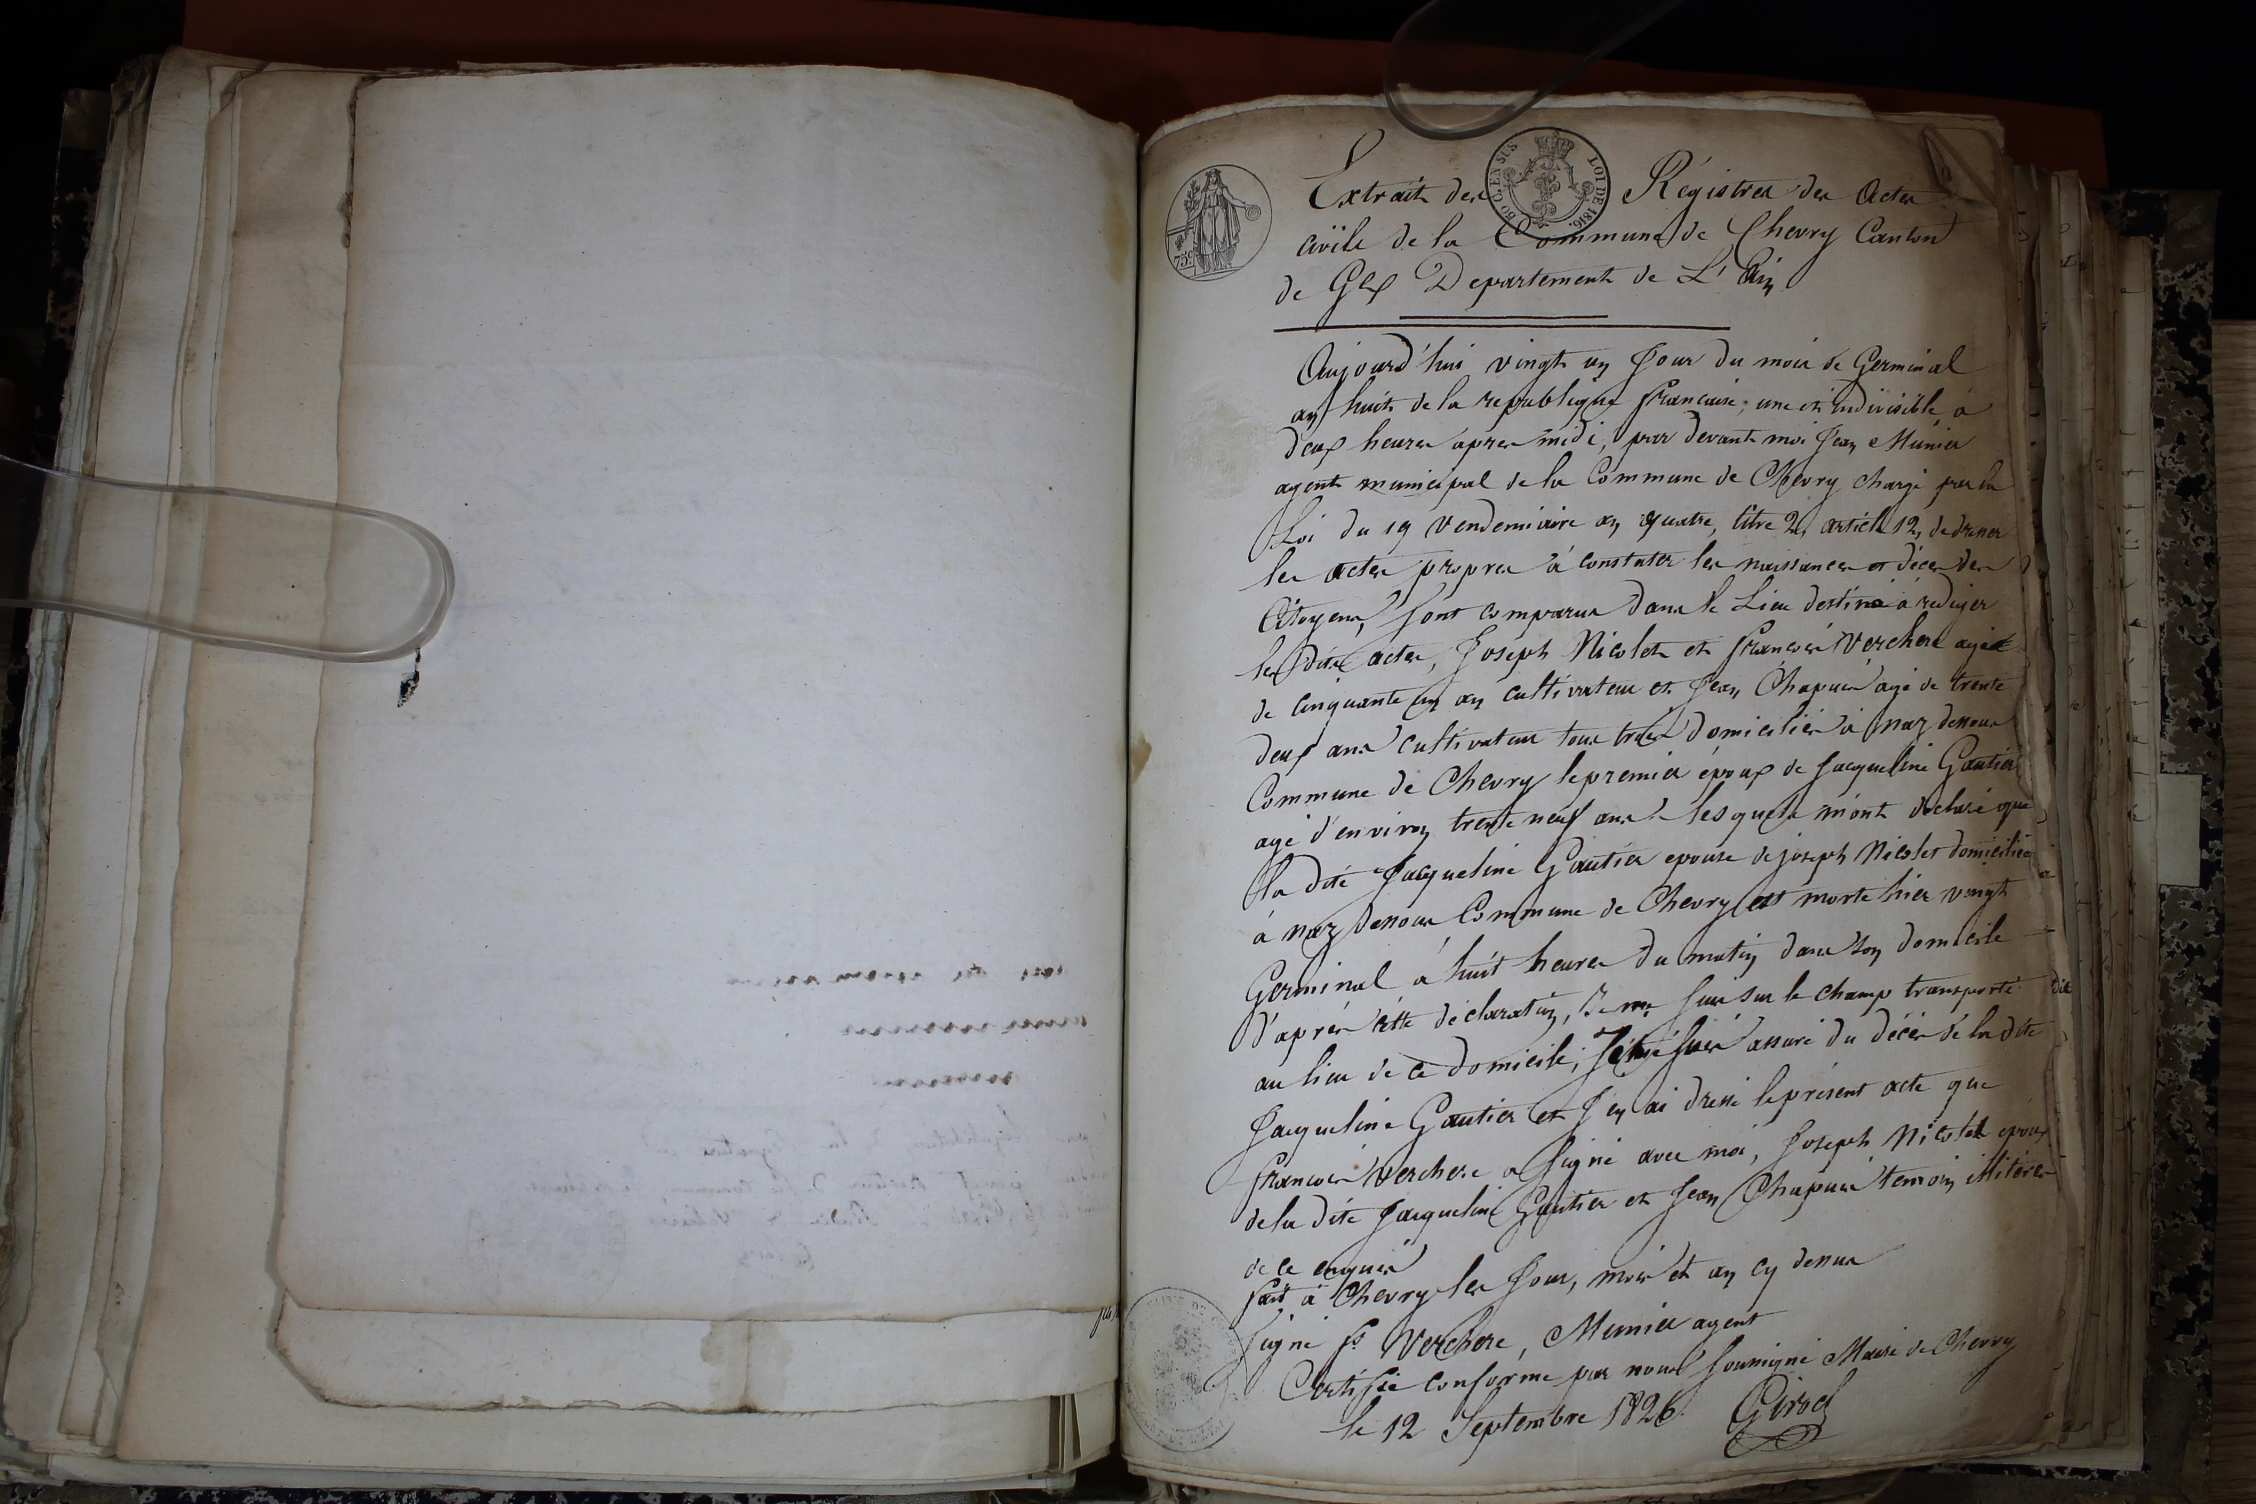 Extrait des Régistres des Actes
civils de la Commune de Chevry Canton
de Gex Departement de L'Ain
BO C. EN SUS
LOI DE 1816.
75c
Aujourd'hui vingt un Jour du mois de Germinal
an huit de la republique francaise, une et indivisible, à
deux heures apres midi, par devant moi Jean Munier
agent municipal de la Commune de Chevry chargé par la
Loi du 19 vendemiaire an quatre, titre 2, article 12, de dresser
les actes propres à constater les naissances et décès des
Citoyens, sont comparus dans le Lieu destiné à rediger
les dits actes, Joseph Nicolet et francois Verchere agé
de cinquante un an cultivateur et Jean Chapuis agé de trente
deux ans cultivateur tous trois domiciliés à naz dessous
Commune de Chevry le premier époux de Jacqueline Gautier
agé d'environ trente neuf ans. lesquels m'ont déclaré que
la dite Jacqueline Gautier epouse de joseph Nicolet domiciliée
à naz dessous Commune de Chevry est morte hier vingt
Germinal à huit heures du matin dans son domicile
d'après cette déclaration, Je me suis sur le champ transporté dit
au lieu de ce domicile, Je me suis assuré du décès de la dite
Jacqueline Gautier et J'en ai dressé le présent acte que
francois Verchere a signé avec moi, Joseph Nicolet époux
de la dite Jacqueline Gautier et Jean Chapuis temoin illiterés
de ce enquis
fait à Chevry les Jour, mois et an cy dessus
Signé fs Verchere, Munier agent
Certifié conforme par nous soussigné Maire de Chevry
le 12 Septembre 1826. Girod